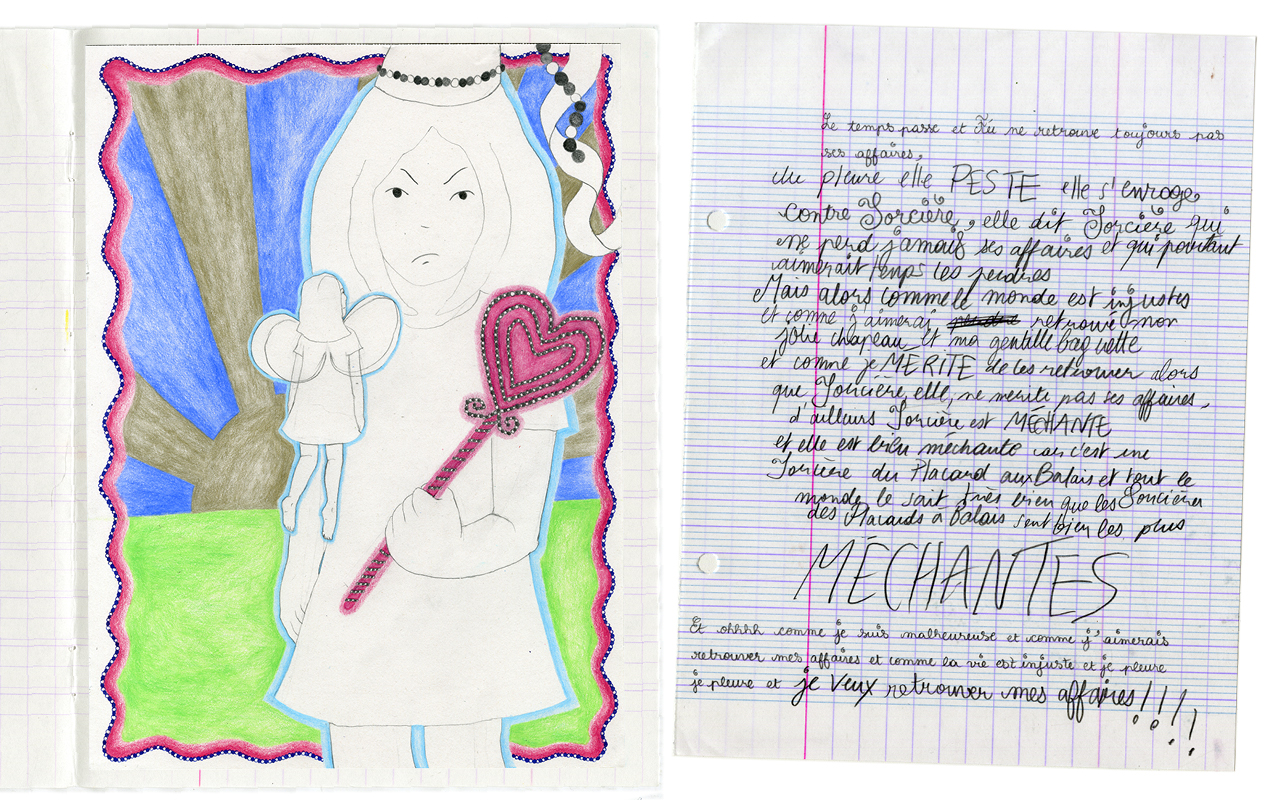 Le temps passe et Fée ne retrouve toujours pas
ses affaires,
elle pleure elle PESTE elle s'enrage
contre Sorcière, elle dit Sorcière qui
ne perd jamais ses affaires et qui pourtant
aimerait temps les perdres
Mais alors comme le monde est injustes
et comme j'aimerai retrouvé mon
jolie chapeau et ma gentille baguette
et comme je MERITE de les retrouver alors
que Sorcière, elle, ne merite pas ses affaires,
d'ailleurs Sorcière est MÉCHANTE
et elle est bien méchante car c'est une
Sorcière du Placard aux Balais et tout le
monde le sait très bien que les Sorcières
des Placards à Balais sont bien les plus
MÉCHANTES
Et ohhhh comme je suis malheureuse et comme j'aimerais
retrouver mes affaires et comme la vie est injuste et je pleure
je pleure et je veux retrouver mes affaires!!!!